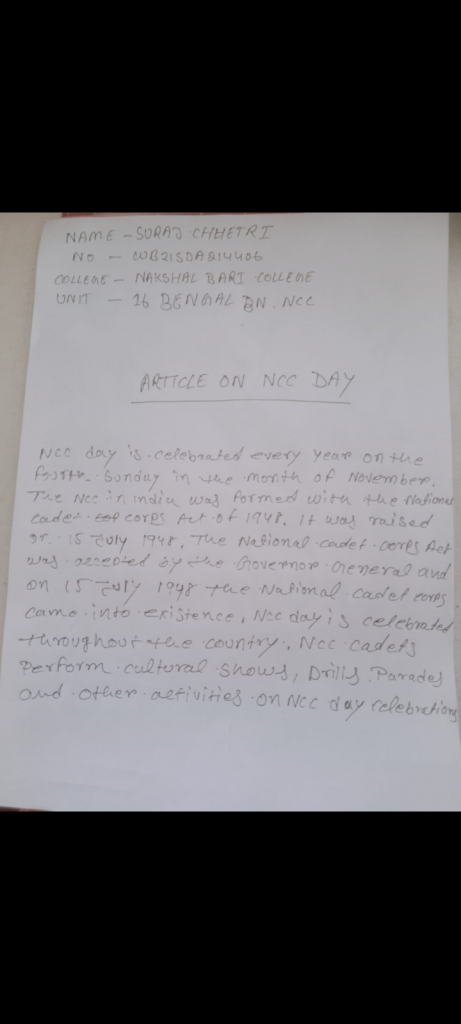 NAME - SURAJ CHHETRI
NO - WB21SDA214406
COLLEGE - NAKSHAL BARI COLLEGE
UNIT - 16 BENGAL BN. NCC
ARTICLE ON NCC DAY
NCC day is celebrated every year on the
fourth Sunday in the month of November.
The NCC in India was formed with the National
cadet corps Act of 1948. It was raised
on 15 July 1948, The National cadet corps Act
was accepted by the Governor General and
on 15 July 1948 the National cadet corps
came into existence, NCC day is celebrated
throughout the country. NCC cadets
Perform cultural shows, Drills, Parades
and other activities on NCC day celebrations